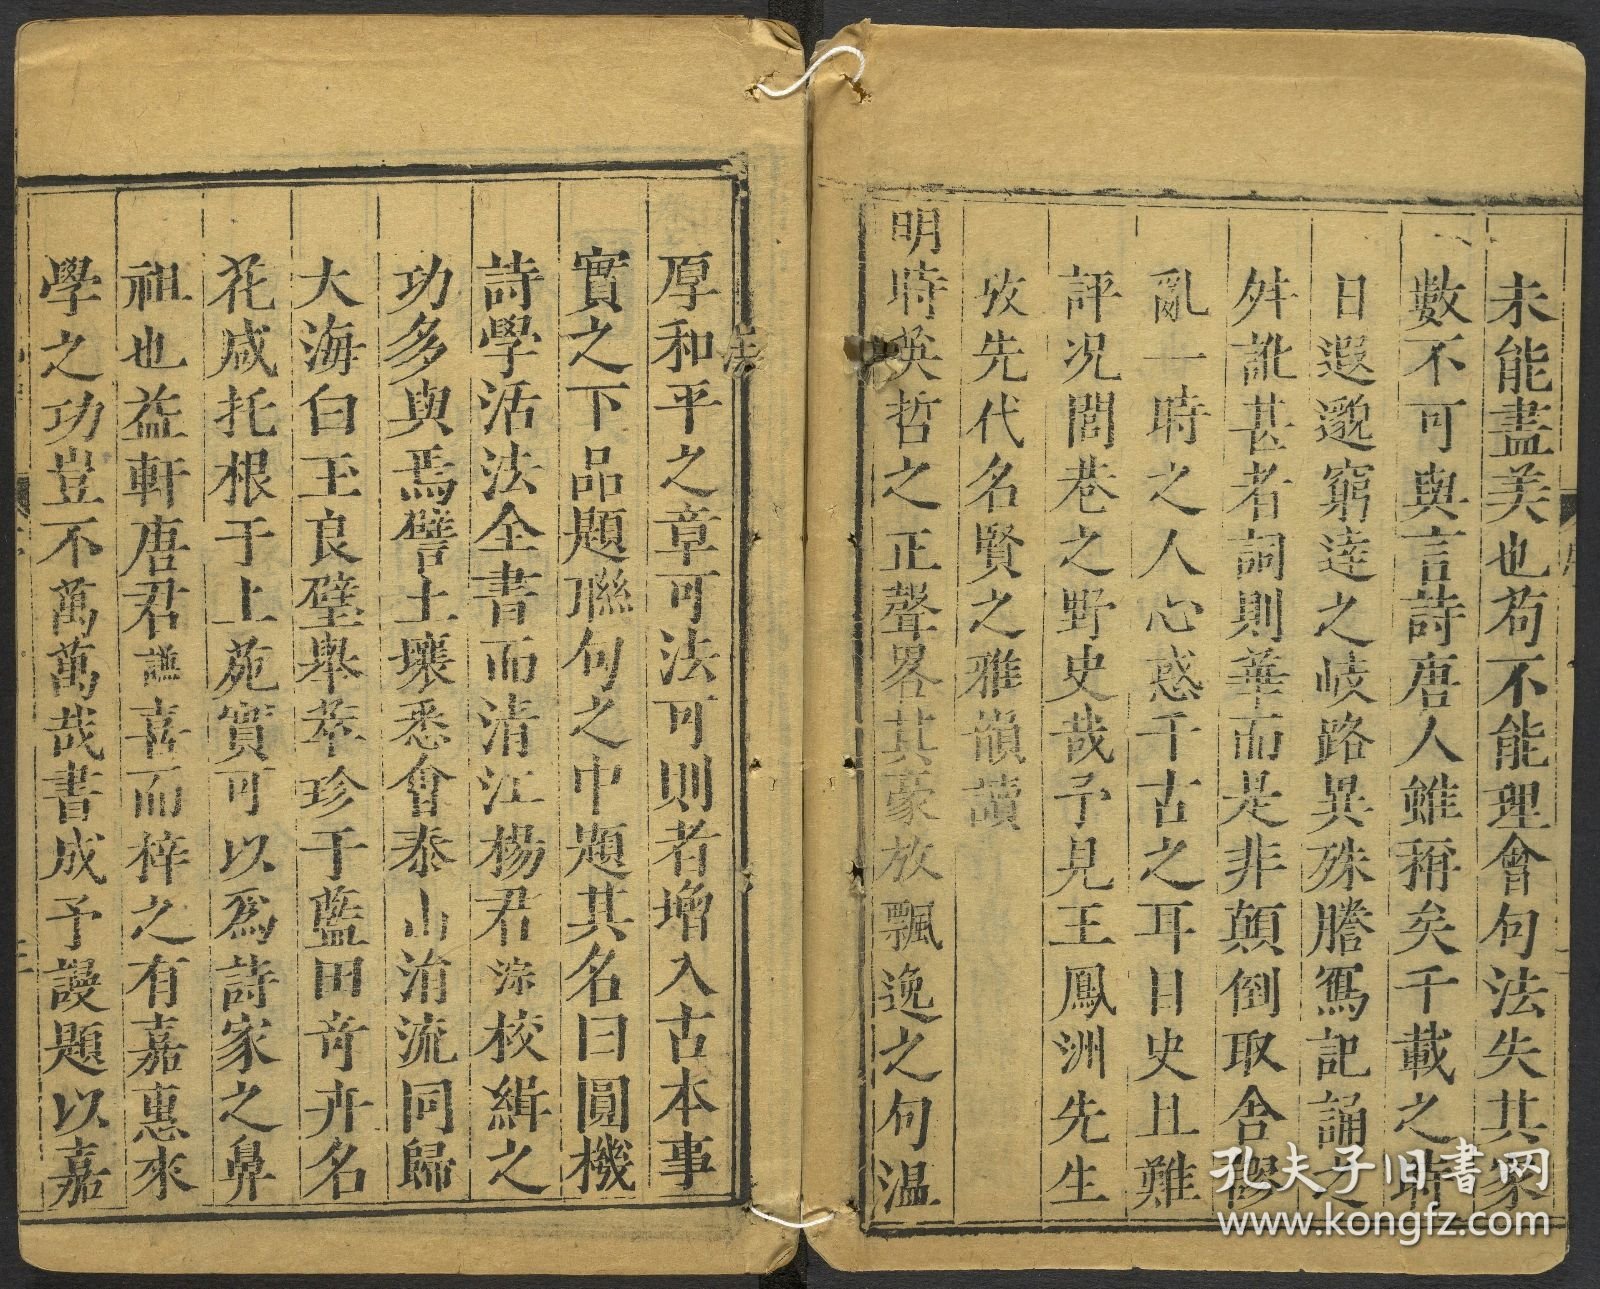 未能盡美也苟不能理會句法失其家
數不可與言詩唐人雖稱矣千載之時
日遐邈窮達之岐路異殊謄寫記誦之
舛訛甚者詞則華而是非顛倒取舍
亂一時之人心惑千古之耳目史且難
評况閭巷之野史哉予見王鳳洲先生
攷先代名賢之雅韻讀
明時英哲之正聲畧其豪放飄逸之句温
厚和平之章可法可則者增入古本事
實之下品題聯句之中題其名曰圓機
詩學活法全書而清江楊君淙校緝之
功多與焉譬土壤悉會泰山淯流同歸
大海白玉良璧舉萃珍于藍田奇卉名
花咸托根于上苑實可以爲詩家之鼻
祖也益軒唐君謙喜而梓之有嘉惠來
學之功豈不萬萬哉書成予謾題以嘉
孔夫子旧书网
www.kongfz.com